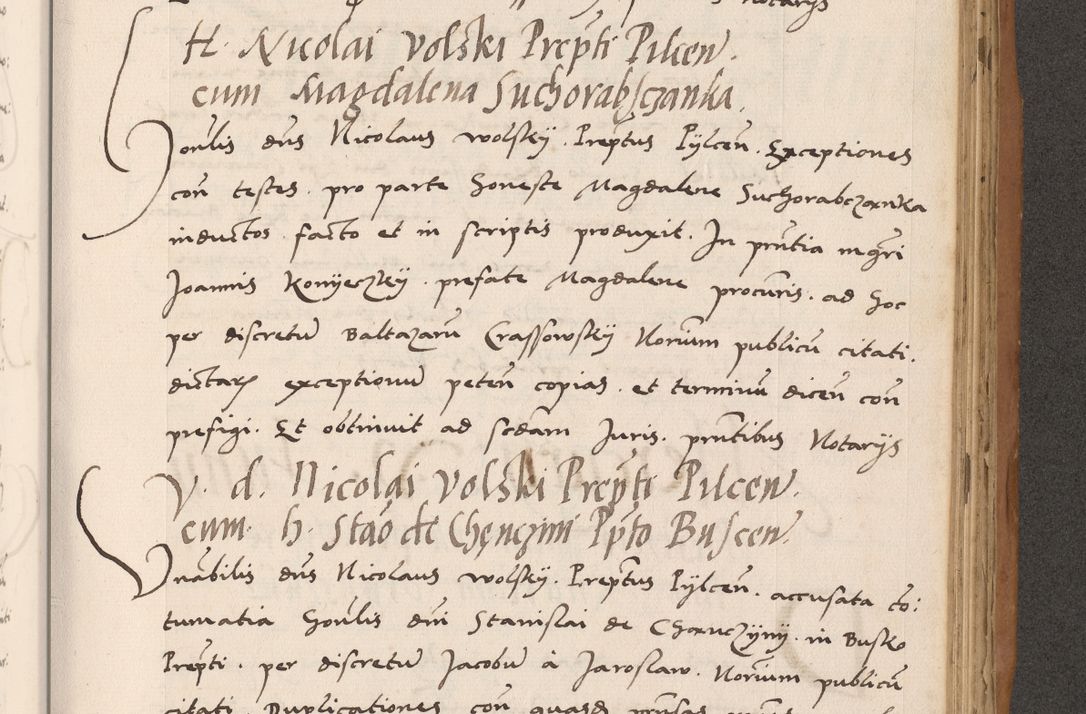 Notarijs
H. Nicolai Volski Prepti Pilcen.
cum Magdalena Suchorabsczanka.
Honlis dns Nicolaus Wolsky. Preptus Pylcen. Exceptiones
con testes. pro parte honeste Magdalene Suchorabczanka
inductos facto et in scriptis produxit. In pntia mgri
Joannis Konyeczky. prefate Magdalene procuris. ad hoc
per discretu Baltazaru Crassowsky Norium publicu citati.
dictaru exceptionu peten copias. et terminu dicen con
prefigi. Et obtinuit ad scdam Juris. pntibus Notarijs
V. d. Nicolai Volski Prepti Pilcen.
cum h. Stao de Chęnczini Ppto Buscen.
Vnabilis dns Nicolaus Wolsky. Preptus Pylcen. accusata co:
tumatia honlis dni Stanislai de Chanczyny. in Busko
Prepti. per discretu Jacobu a Jaroslaw. Norium publicu
citati. Duplicationes con quasd